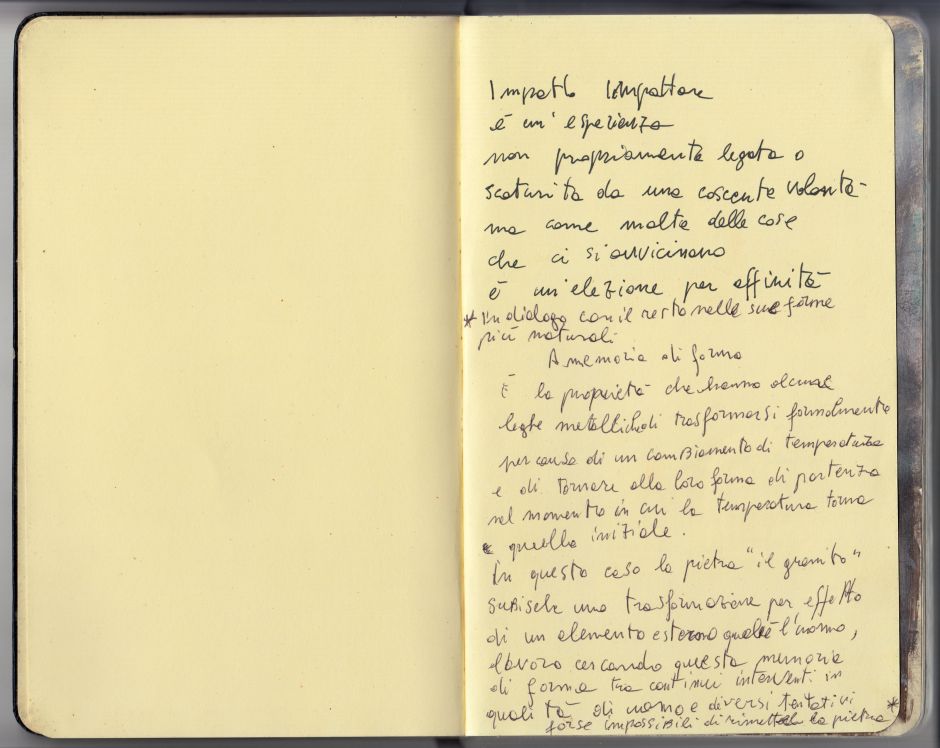 Impatto compattare
è un' esperienza
non propriamente legata o
scaturita da una coscente volontà
ma come molte delle cose
che ci si avvicinano
è un' elezione per affinità
* in dialogo con il resto nelle sue forme
più naturali
A memoria di forma
È la proprietà che hanno alcune
leghe metalliche di trasformarsi formalmente
per causa di un cambiamento di temperatura
e di tornare alla loro forma di partenza
nel momento in cui la temperatura torna
quella iniziale.
In questo caso la pietra "il granito"
subisce una trasformazione per effetto
di un elemento esterno quale è l'uomo,
lavoro cercando questa memoria
di forma tra continui interventi in
qualità di uomo e diversi tentativi
forse impossibili di rimettere la pietra *